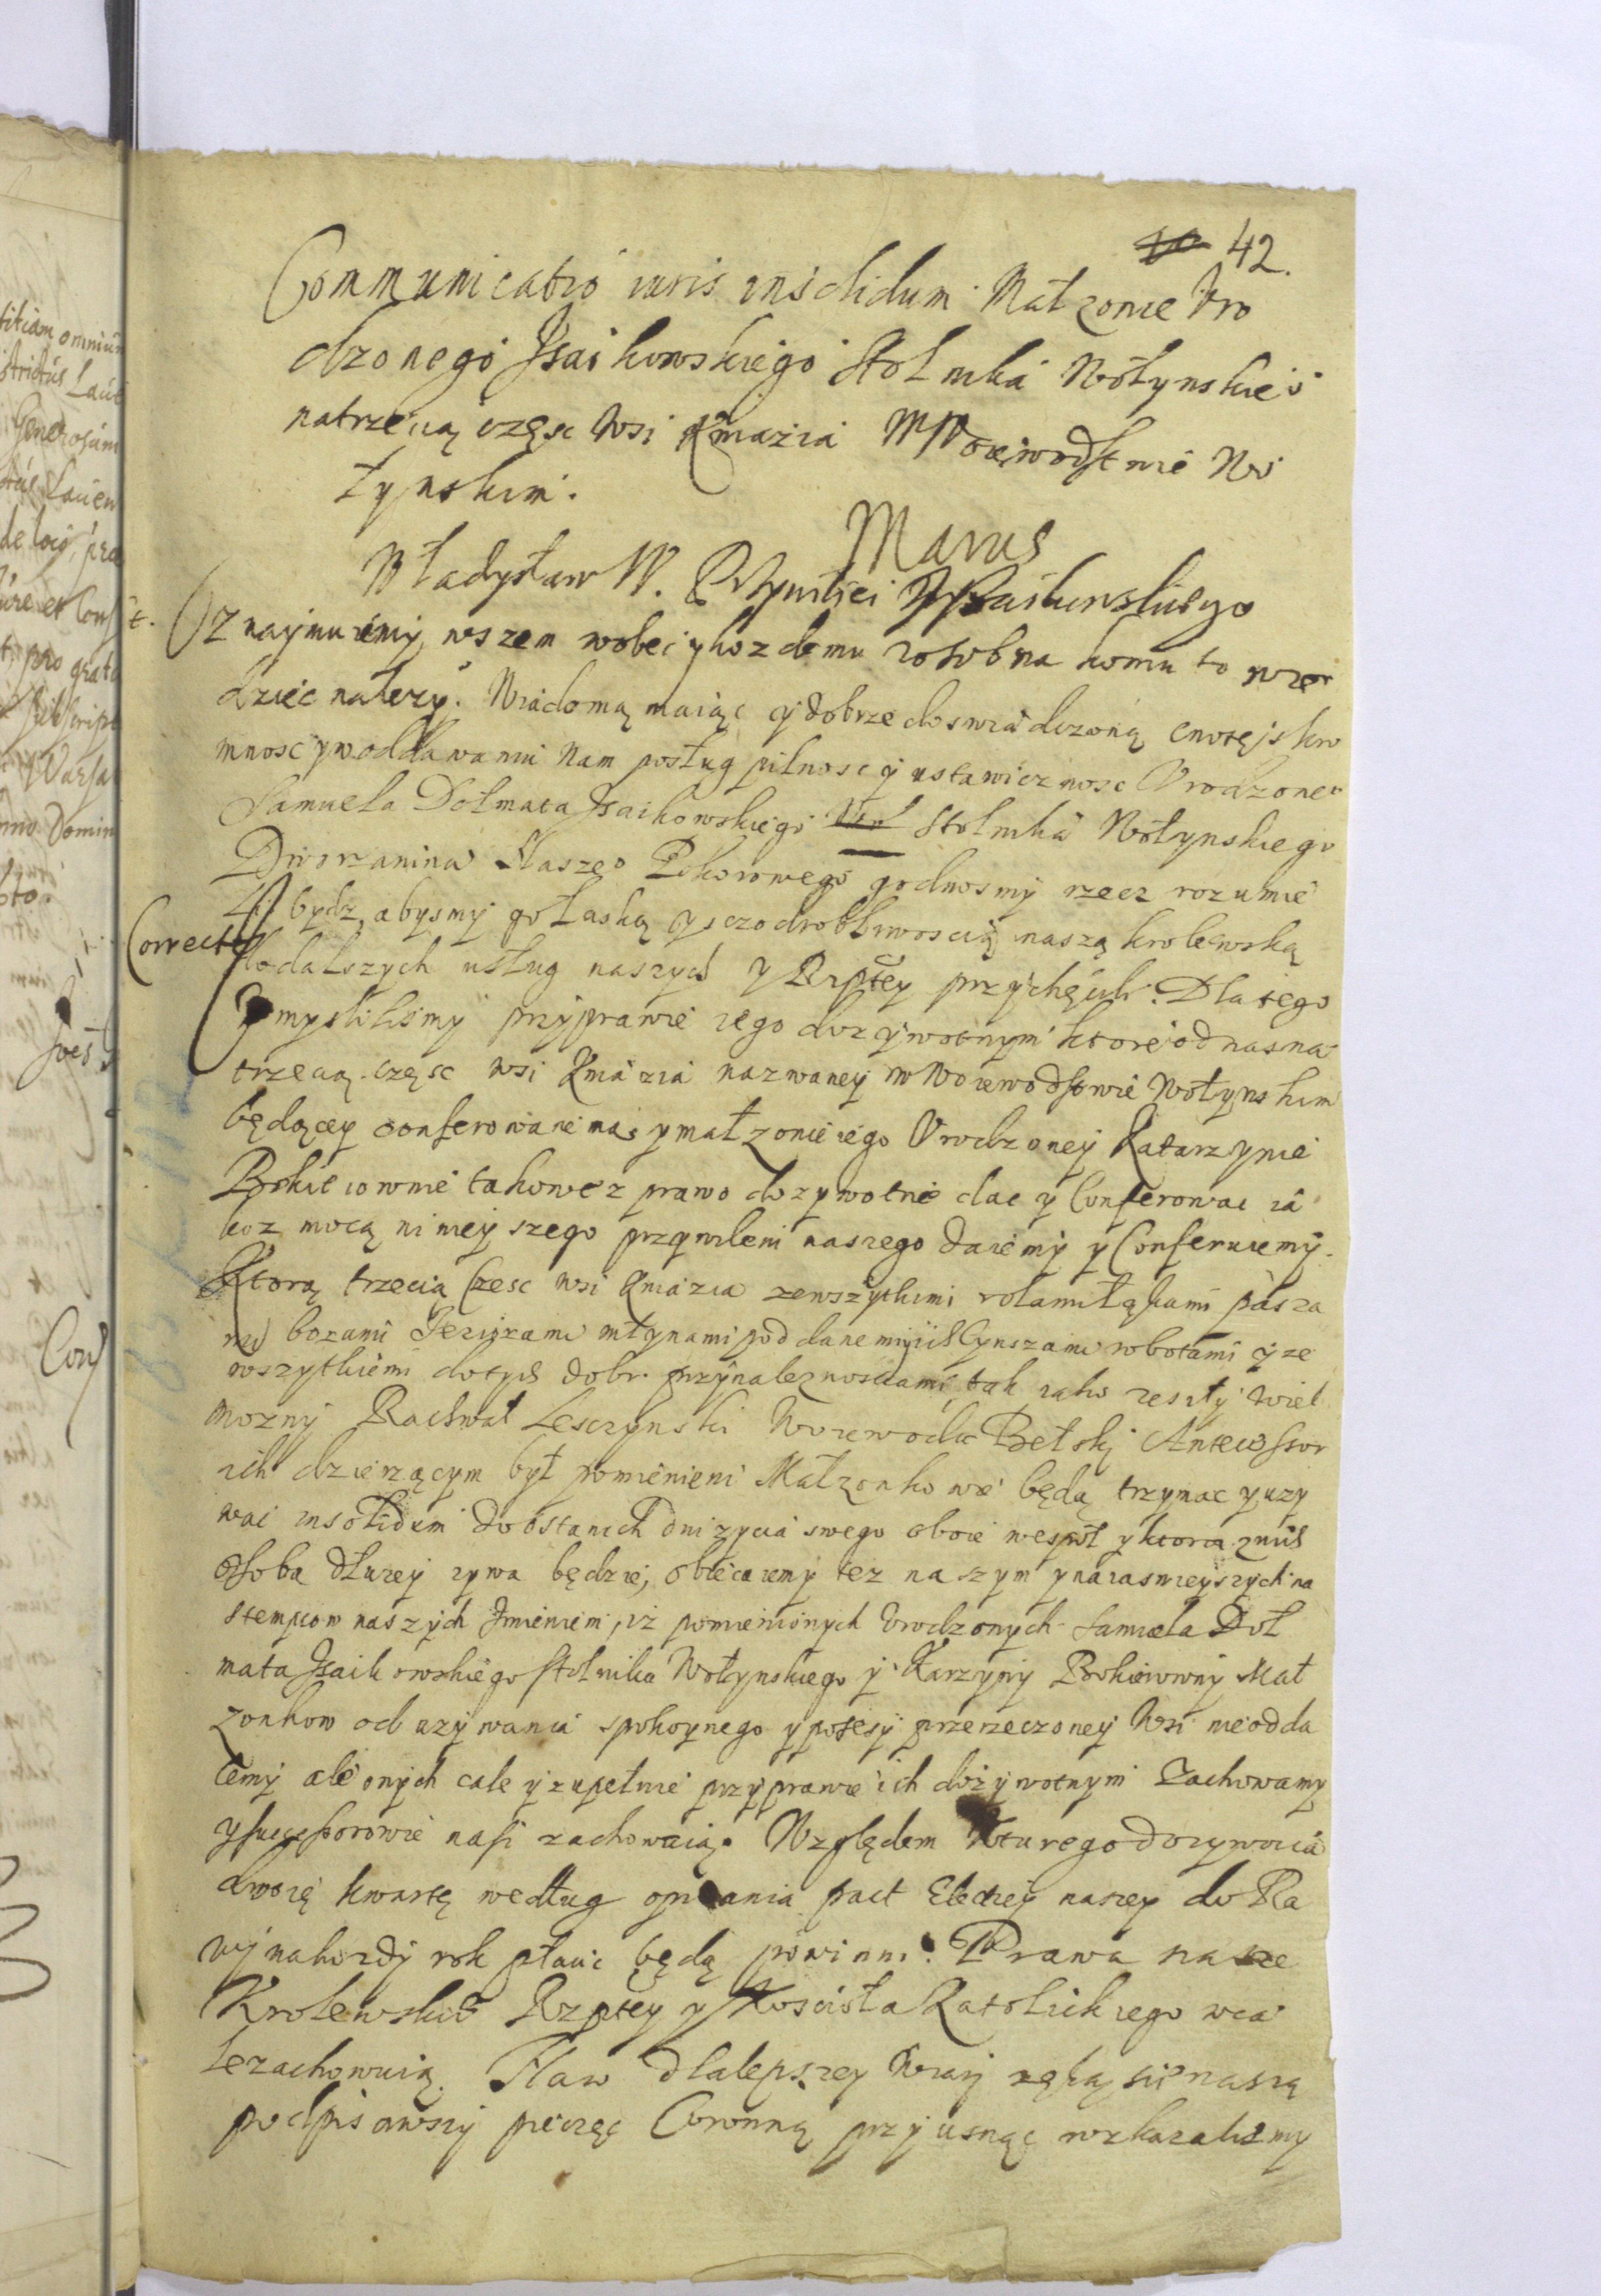 42.
Communicatio iuris insolidum Małzonie Vro
dzonego Jsaikowskiego Stolnika Wołynskieo
natrzecią częsc Wsi Kniazia W Woiewodstwie Wo
łynskim.
Marus
Władysław IV.
Oznaymuiemy wszem wobec y kozdemu zosobna komu to wie
dziec nalezy. Wiadomą maiąc y dobrze doswiadczoną cnotę, skro
mnosc y woddawaniu Nam posług pilnosc y ustawicznosc Vrodzoneo
Samuela Dołmata Jsaikowskiego Stolnika Wołynskiego
Dworzanina Naszego Pokoiowego godnosmy rzecz rozumie
li bydz, abysmy go łaską y sczodrobliwoscią naszą krolewską
Correcta
do dalszych usług naszych y Rzptey przychęcili. Dlatego
umyslilismy przy prawie iego dozywotnym ktore od nas na
trzecią częsc wsi Kniazia nazwaney w Woiewodstwie Wołynskim
będącey conferowane ma, y małzonie iego Vrodzoney Katarzynie
Bokiiownie takowez prawo dozywotnie dac y Conferowac ia
koz mocą ninieyszego przywileiu naszego daiemy y Conferuiemy.
Ktorą trzecią Czesc wsi Kniazia zewszytkimi rolami łąkami pasza
mi borami Jezioramı młynami poddanemi y ich Cynszami robotami y ze
wszytkiemi do tych dobr przynaleznosciami, tak iako zeszły Wiel
mozny Rachwał Lesczynski Woiewoda Bełski Antecessor
ich dzierzącym był pomienieni Małzonkowie będą trzymac y uzy
wac insolidum do ostanich dni zycia swego oboie wespoł y ktora znich
osoba dłuzey zywa będzie, obiecuiemy tez naszym y naiasnieyszych na
stempcow naszych Jmieniem, iz pomienionych Vrodzonych Samuela Doł
mata Jsaikowskiego stolnika Wołynskiego y Karzyny Bokiiowny Mał
zonkow od uzywania spokoynego y posesy przerzeczoney Wsi nie odda
lemy ale onych cale y zupełnie przy prawie ich dozywotnym Zachowamy
y successorowie nasi zachowaią. Względem kturego dozywocia
dwoię kwartę według opisania pact Elekciey naszey do Ra
wy na kozdy rok płacic będą powinni. Prawa nasze
Krolewskie Rzptey y Koscioła Katolickiego wca
le zachowuią. Naco dla lepszey Wiary ręką się naszą
podpisawszy pieczęc Coronną przycisnąc rozkazalismy